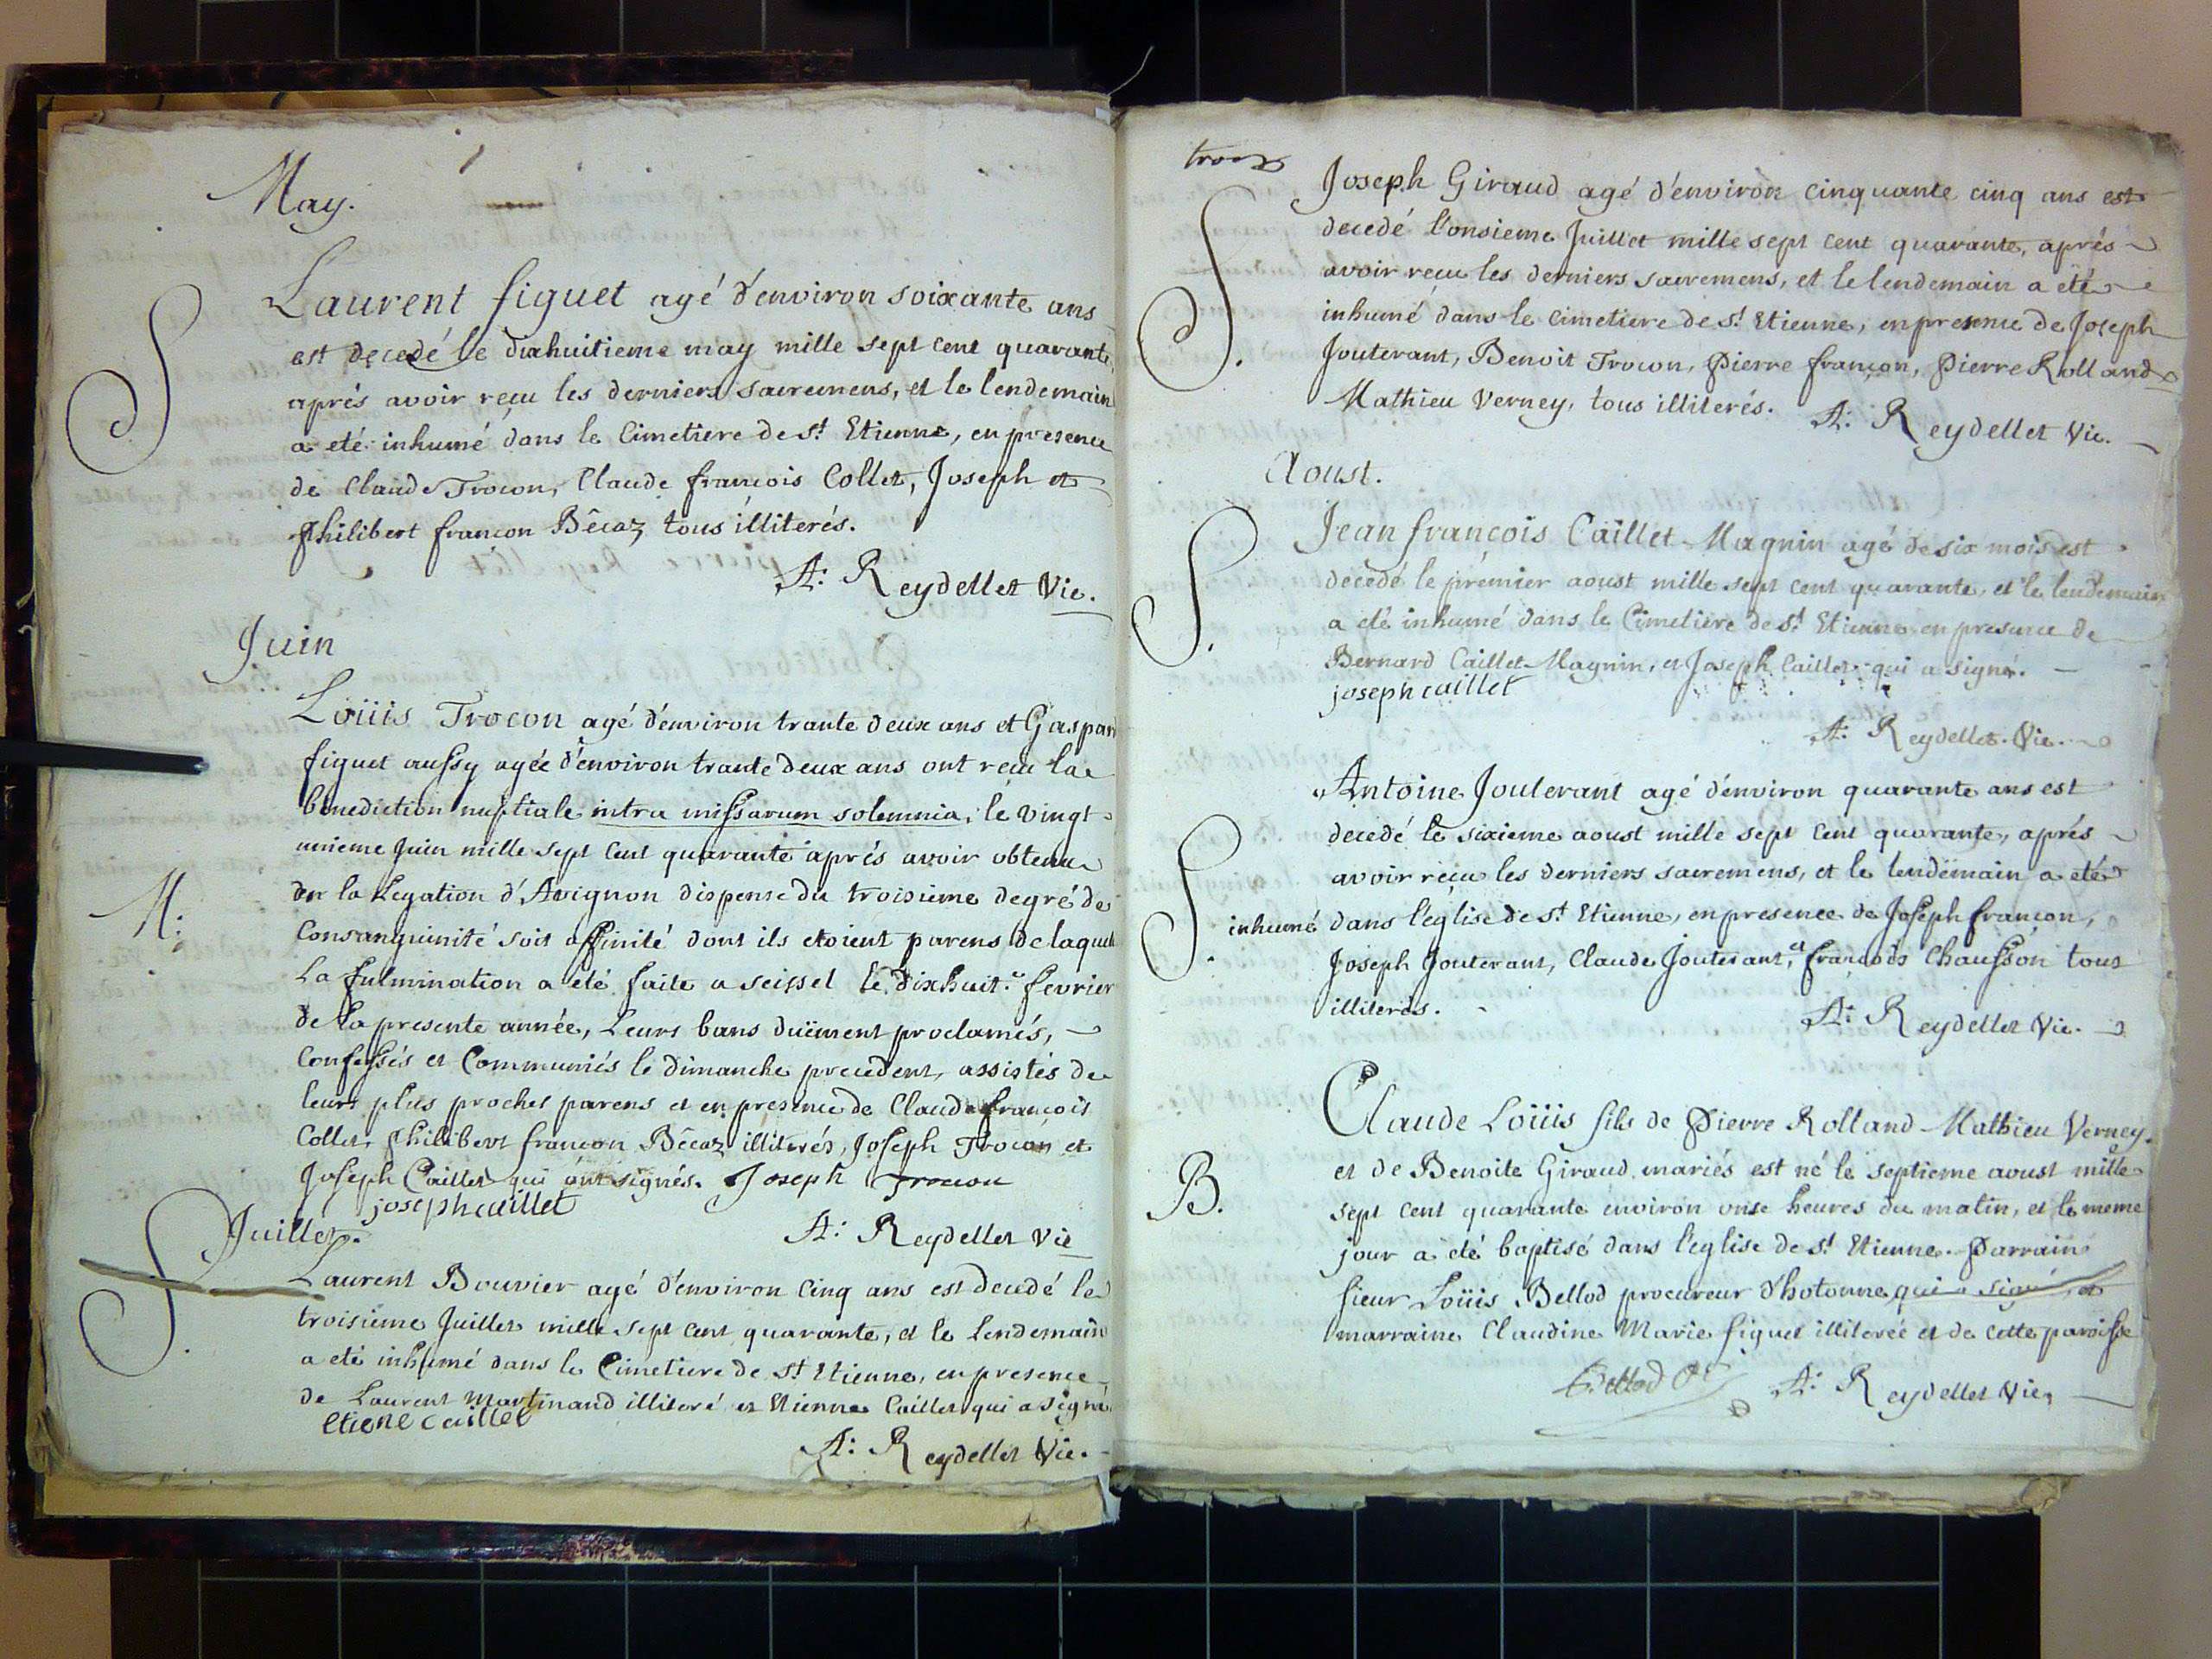 May.
S Laurent figuet agé d'environ soixante ans
est decedé le dixhuitieme may mille sept cent quarante,
aprés avoir reçu les derniers sacremens, et le lendemain
a eté inhumé dans le Cimetiere de St Etienne, en presence
de Claude Trocon, Claude françois Collet, Joseph et
philibert françon Bêcaz tous illiterés.
A: Reydellet Vic.
Juin
Loüis Trocon agé d'environ trante deux ans et Gaspar
figuet aussy agée d'environ trante deux ans ont reçu la
benediction nuptiale intra missarum solemnia, le vingt
unieme Juin mille sept cent quarante aprés avoir obtenu
M: de la Legation d'Avignon dispense du troisieme degré de
Consanguinité soit affinité dont ils etoient parens de laquelle
La fulmination a eté faite a seissel le dixhuit.e fevrier
de la presente année, Leurs bans duëment proclamés,
Confessés et Communiés le dimanche precedent, assistés de
leurs plus proches parens et en presence de Claude françois
Collet, philibert françon Bêcaz illiterés, Joseph Trocon et
Joseph Caillet qui ont signés. Joseph Trocon
joseph caillet
A: Reydellet Vic
Juillet.
S. Laurent Bouvier agé d'environ Cinq ans est decedé le
troisieme Juillet mille sept cent quarante, et le Lendemain
a eté inhumé dans le Cimetiere de St Etienne, en presence
de Laurent Martinand illiteré et Etienne Caillet qui a signé
etiene caillet
A: Reydellet Vic.
troix
S. Joseph Giraud agé d'environ cinquante cinq ans est
decedé l'onsieme Juillet mille sept cent quarante, aprés
avoir reçu les derniers sacremens, et le lendemain a eté
inhumé dans le cimetiere de St Etienne, en presence de Joseph
Jouterant, Benoit Trocon, Pierre françon, Pierre Rolland
Mathieu Verney, tous illiterés. A: Reydellet Vic.
Aoust.
S. Jean françois Caillet-Magnin agé de six mois est
decedé le premier aoust mille sept cent quarante, et le lendemain
a eté inhumé dans le Cimetiere de St Etienne en presence de
Bernard Caillet-Magnin, et Joseph Caillet qui a signé.
joseph caillet
A: Reydellet. Vic.
S. Antoine Jouterant agé d'environ quarante ans est
decedé le sixieme aoust mille sept cent quarante, aprés
avoir reçu les derniers sacremens, et le lendemain a eté
inhumé dans l'eglise de St Etienne, en presence de Joseph françon,
Joseph Jouterant, Claude Jouterant, et françois Chausson tous
illiterés. A: Reydellet Vic.
Claude Loüis fils de Pierre Rolland-Mathieu Verney
B. et de Benoite Giraud mariés est né le septieme aoust mille
sept cent quarante environ onse heures du matin, et le meme
jour a eté baptisé dans l'eglise de St Etienne. Parrain
sieur Loüis Bellod procureur d'hotonne qui a signé, et
marraine Claudine Marie figuet illiterée et de cette paroisse
Bellod A: Reydellet Vic,